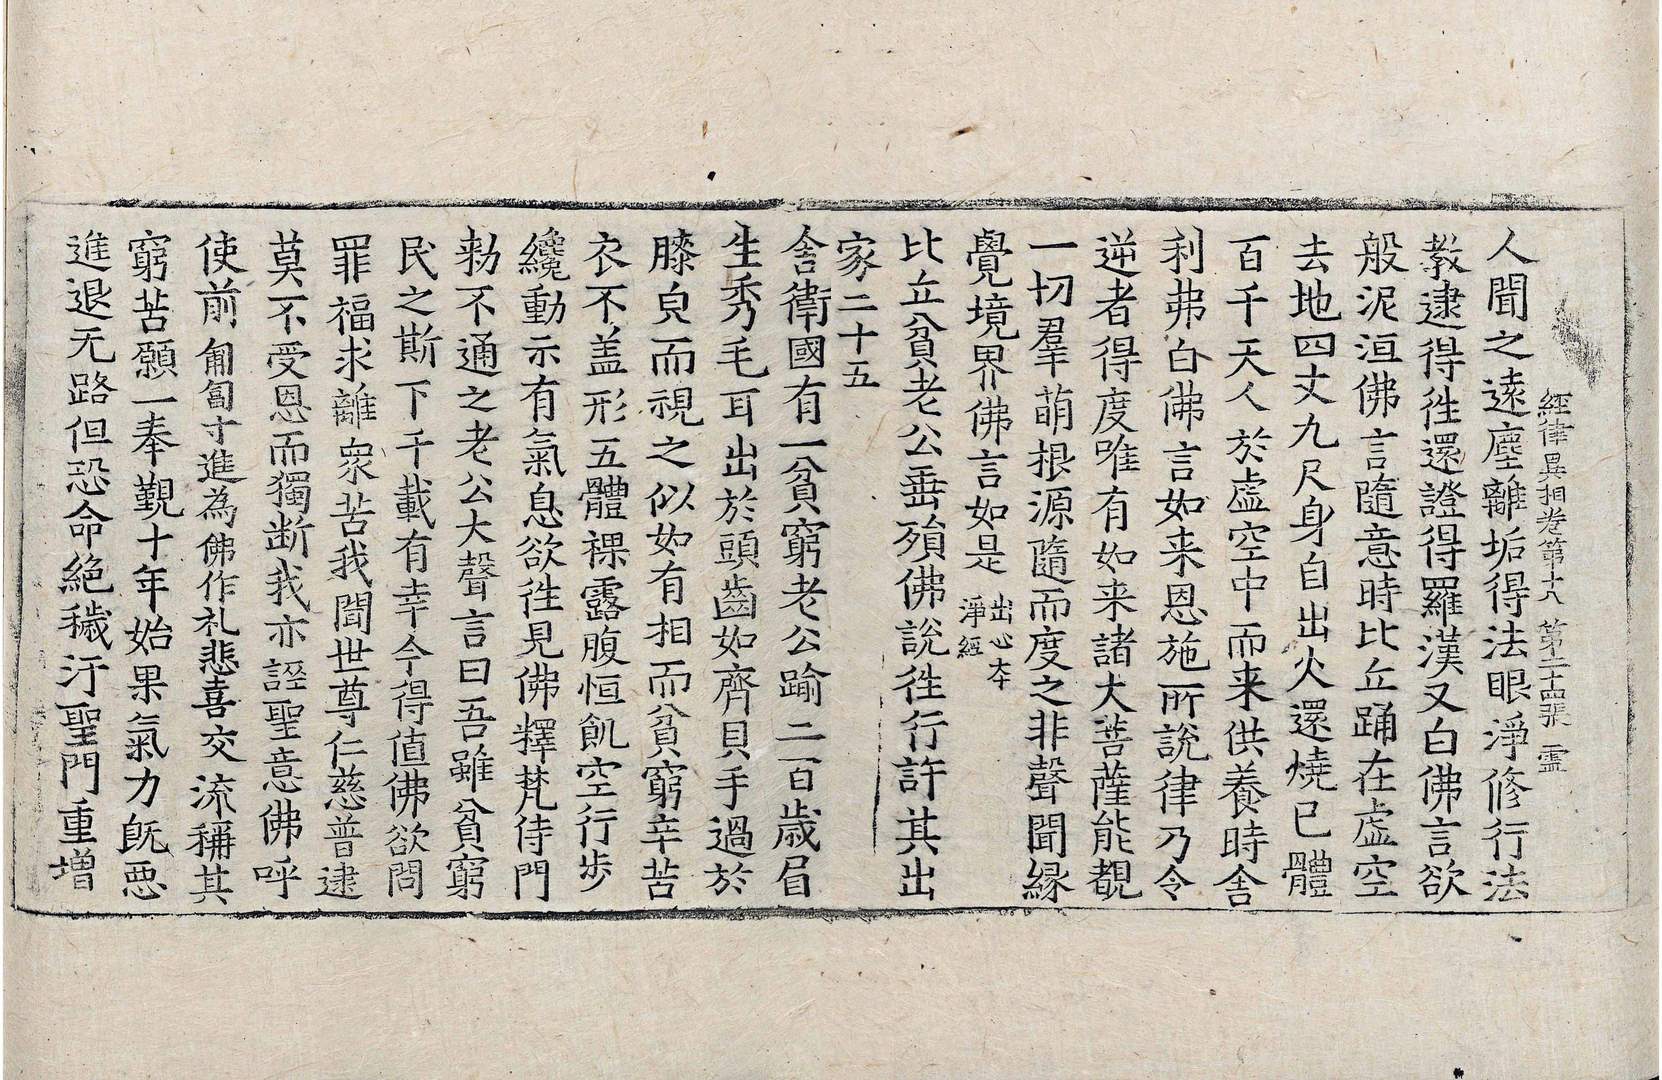 經律異相卷第十八 第二十四張 霊
人聞之遠塵離垢得法眼淨修行法
教逮得徃還證得羅漢又白佛言欲
般泥洹佛言隨意時比丘踊在虛空
去地四丈九尺身自出火還燒已體
百千天人於虛空中而来供養時舍
利弗白佛言如来恩施所說律乃令
逆者得度唯有如来諸大菩薩能覩
一切羣萌根源隨而度之非聲聞縁
覺境界佛言如是出心本
淨經
比丘貧老公垂殞佛說徃行許其出
家二十五
舍衛國有一貧窮老公踰二百歳眉
生秀毛耳出於頭齒如齊貝手過於
膝皃而視之似如有相而貧窮辛苦
衣不盖形五體裸露腹恒飢空行步
纔動示有氣息欲徃見佛釋梵侍門
勑不通之老公大聲言曰吾雖貧窮
民之斯下千載有幸今得值佛欲問
罪福求離衆苦我聞世尊仁慈普逮
莫不受恩而獨断我亦誣聖意佛呼
使前匍匐寸進為佛作礼悲喜交流稱其
窮苦願一奉覲十年始果氣力旣惡
進退无路但恐命絶穢汙聖門重增